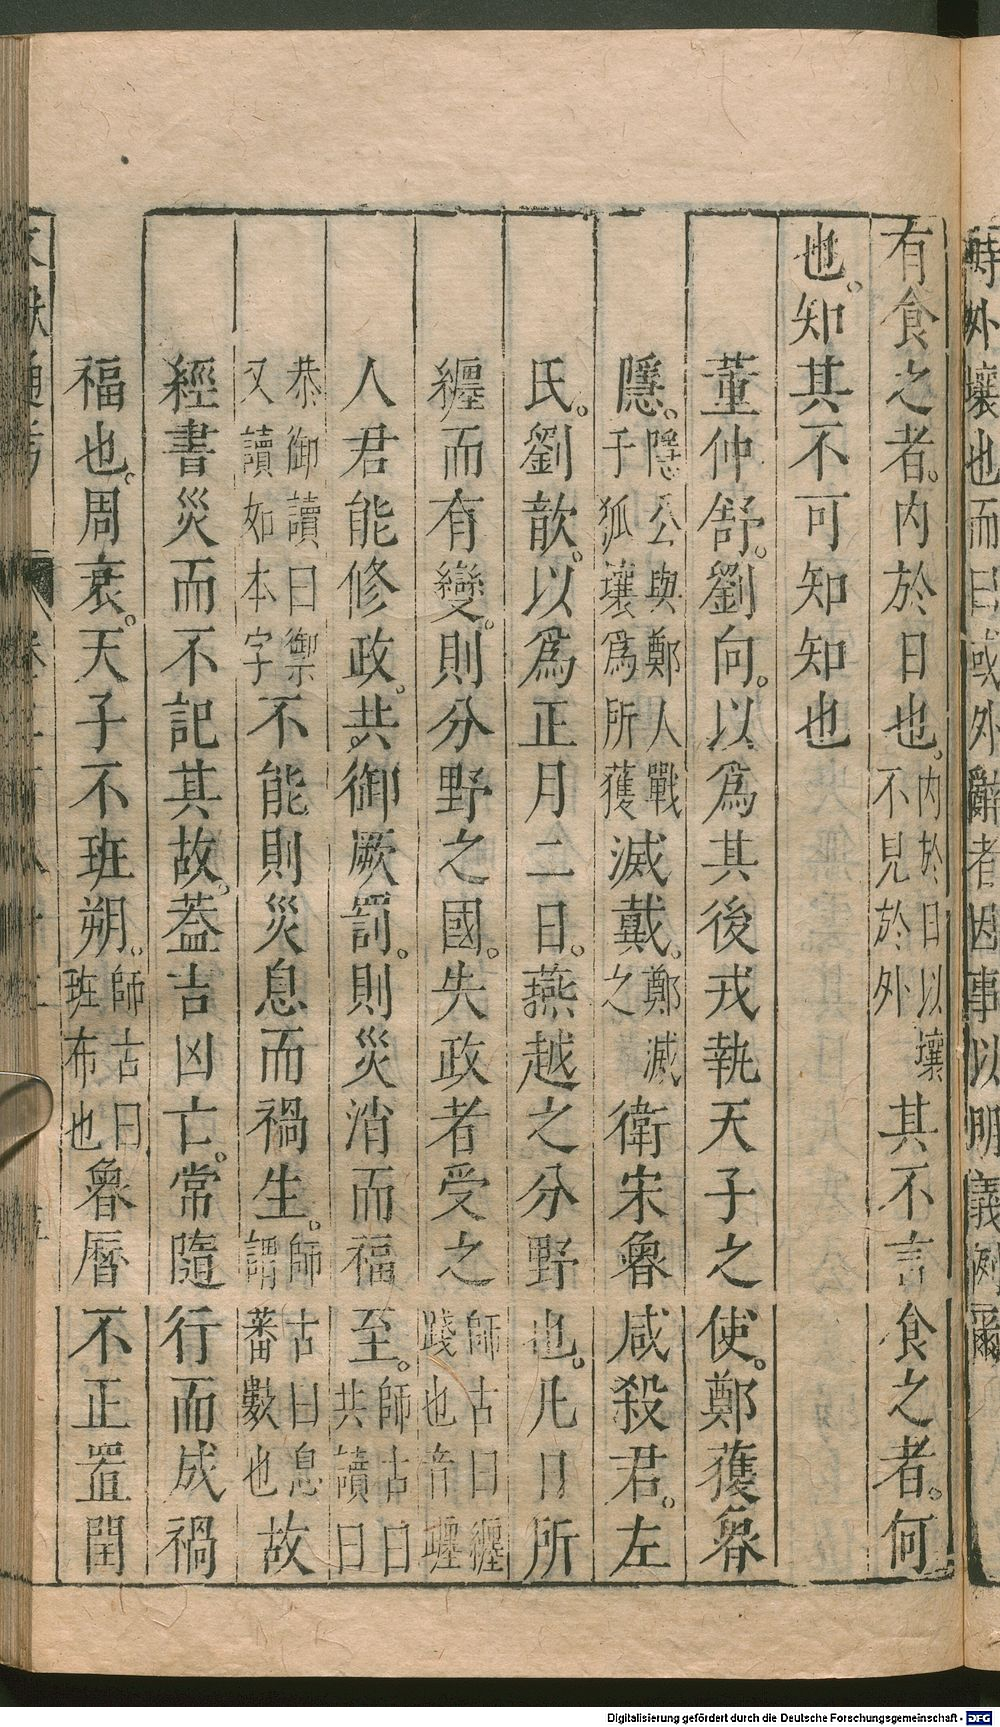 時外壤也而曰或外辭者因事以明義例爾
有食之者。內於日也。內於日以壤不見於外其不言食之者。何
也。知其不可知知也
董仲舒。劉向。以爲其後戎執天子之使。鄭獲魯
隱。隱公與鄭人戰于狐壤爲所獲滅戴。鄭滅之衛宋魯咸殺君。左
氏。劉歆。以爲正月二日。燕越之分野也。凡日所
纏而有變。則分野之國。失政者受之師古曰纏踐也音躔
人君能修政。共御厥罰。則災消而福至。師古曰共讀曰
恭御讀曰禦又讀如本字不能則災息而禍生。師古曰息謂蕃數也故
經書災而不記其故。葢吉凶亡。常隨行而成禍
福也。周衰。天子不班朔。師古曰班布也魯曆不正置閏
文獻通考
Digitalisierung gefördert durch die Deutsche Forschungsgemeinschaft - DFG